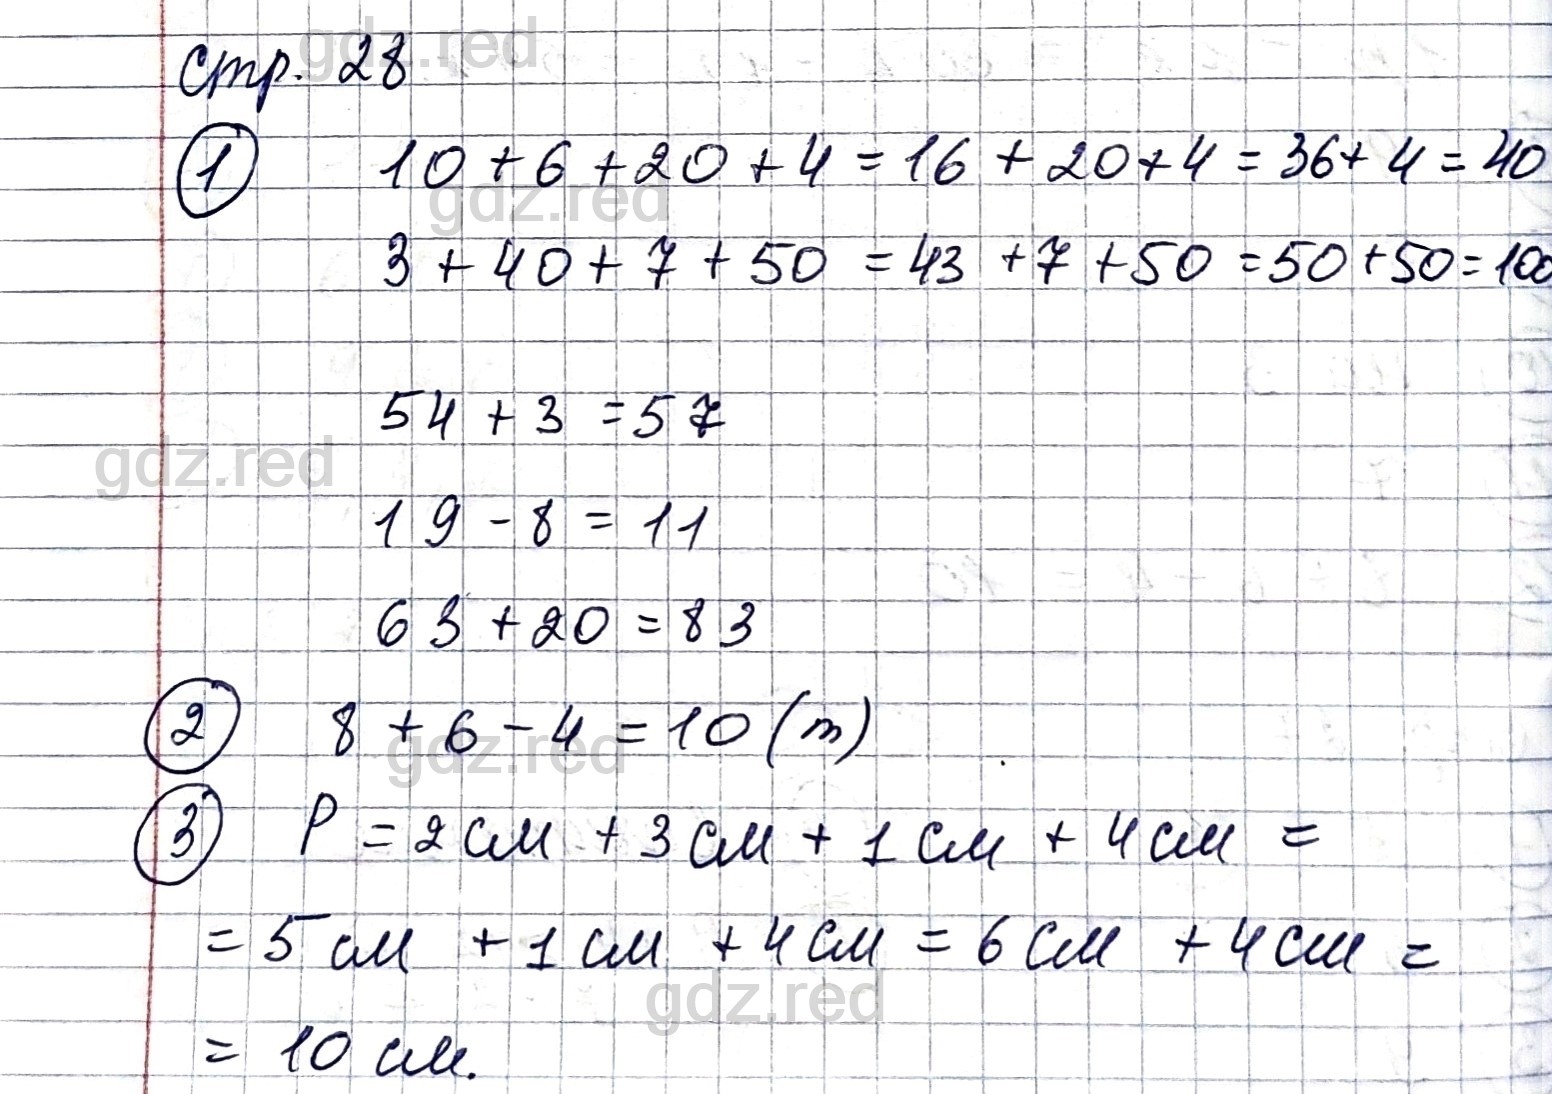 стр. 28
1 10 + 6 + 20 + 4 = 16 + 20 + 4 = 36 + 4 = 40
3 + 40 + 7 + 50 = 43 + 7 + 50 = 50 + 50 = 100
54 + 3 = 57
19 - 8 = 11
63 + 20 = 83
2 8 + 6 - 4 = 10 (т)
3 P = 2 см + 3 см + 1 см + 4 см =
= 5 см + 1 см + 4 см = 6 см + 4 см =
= 10 см.
gdz.red
gdz.red
gdz.red
gdz.red
gdz.red